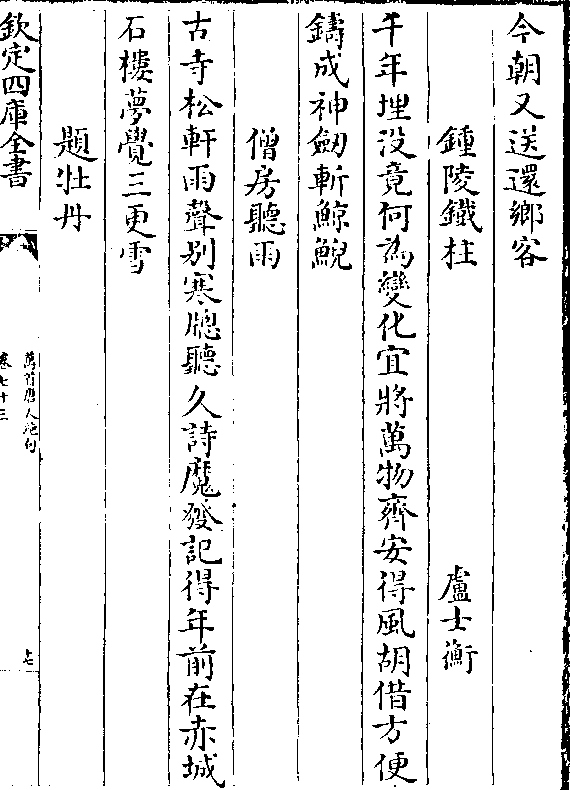 今朝又送還鄉客
鍾陵鐵柱 盧士衡
千年埋没竟何為變化宜將萬物齊安得風胡借方便
鑄成神劒斬鯨鯢
僧房聽雨
古寺松軒雨聲别寒牕聽久詩魔發記得年前在赤城
石樓夢覺三更雪
題牡丹
欽定四庫全書
萬首唐人絶句
卷七十三
七